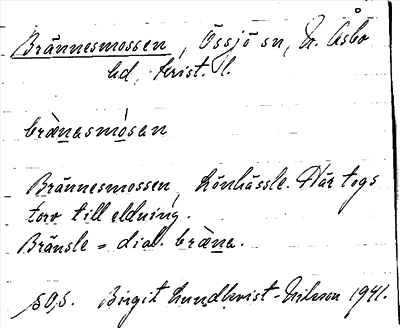 Brännesmossen, Össjö sn, N. Åsbo
hd, Krist. l.
bränasmósan
Brännesmossen, Lönhässle. Där togs
torv till eldning.
Bränsle = dial. bräna.
s. 0, 5. Birgit Lundkvist-Nilsson 1941.